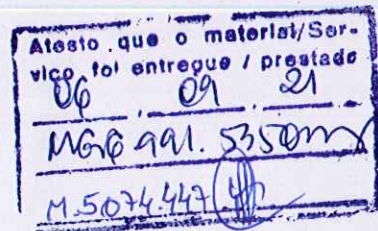 Atesto que o material/Ser-
viço foi entregue / prestado
06 09 21
M.5074.447